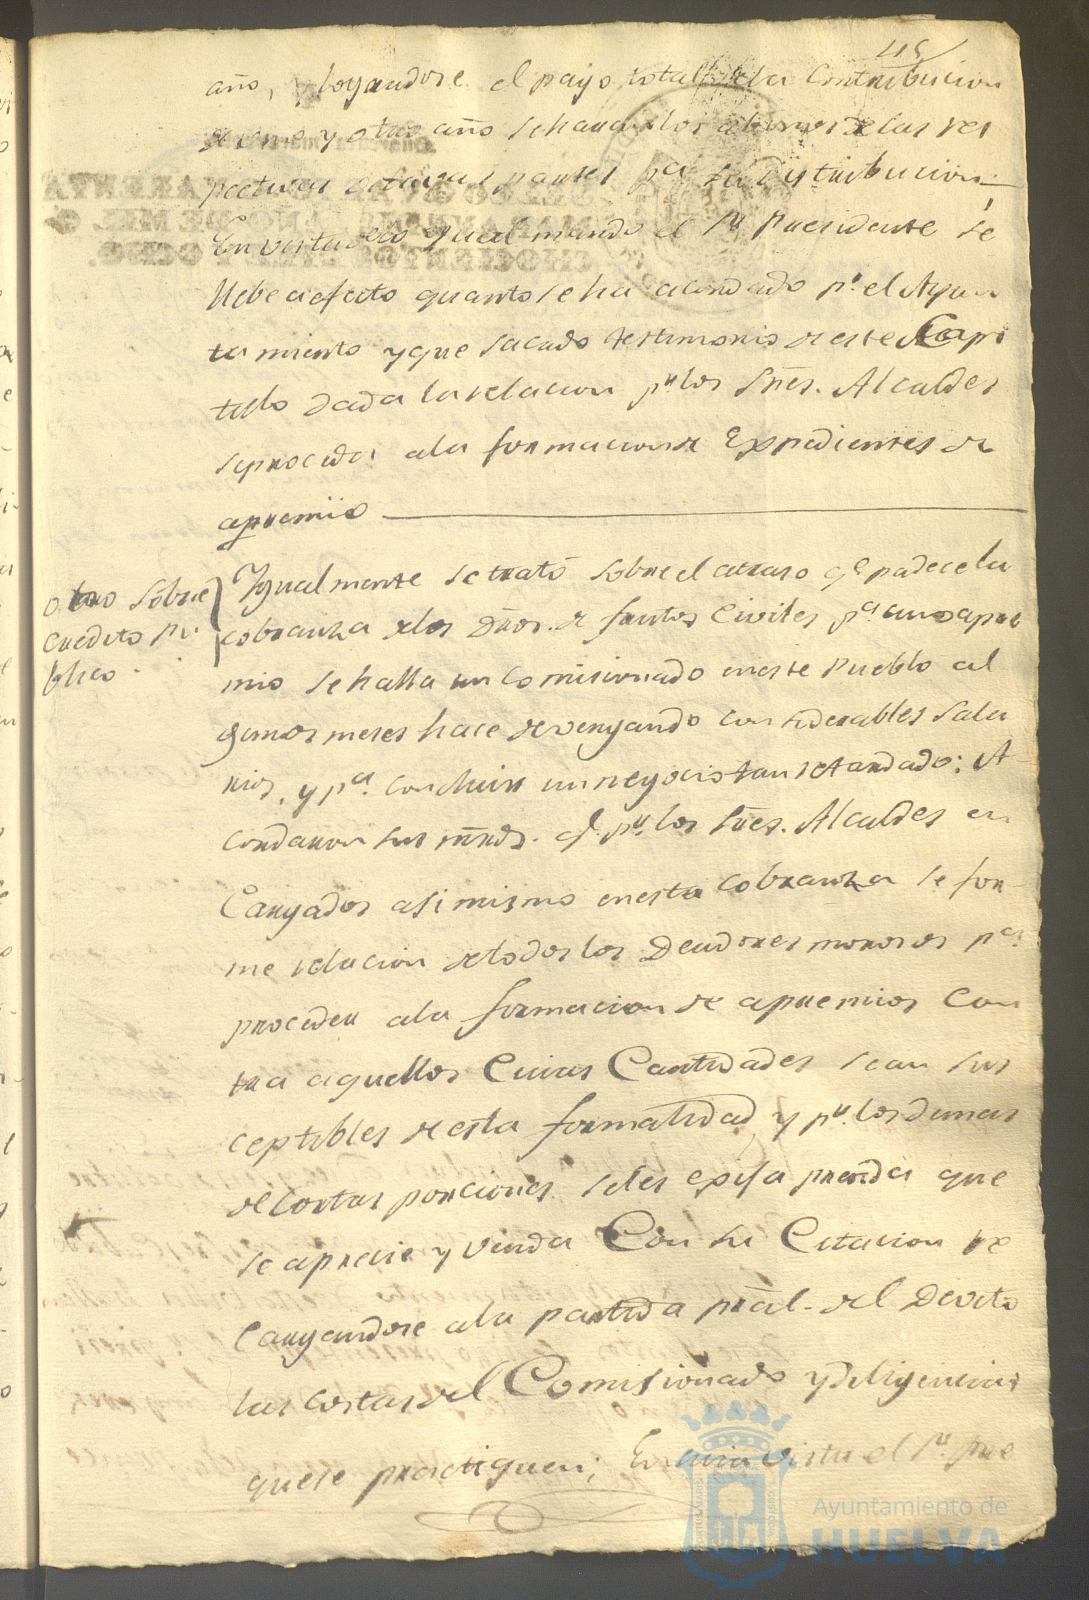 115
año, y lograndose el pago total de la Contribucion
de uno y otro año se haran los abonos de las res
pectivas partes pa. su Distribucion;
En vista de lo qual mando el Sr. Presidente se
llebe a efecto quanto se ha acordado pr. el Ayun
tamiento y que sacado testimonio de este Capi
tulo dada la relacion pr. los Sres. Alcaldes
se proceda a la formacion de Expedientes de
apremio
Otro sobre
credito pu
blico.
Igualmente se trató sobre el atraso qe. padece la
cobranza de los Dros. de frutos Civiles pa. cuio apre
mio se halla un Comisionado en este Pueblo al
gunos meses hace devengando considerables Sala
rios, y pa. concluir un negocio tan retardado: A
cordaron sus mrds. q. pr. los Sres. Alcaldes en
Cargados asi mismo en esta cobranza se for
me relacion de todos los Deudores morosos pa.
proceder a la formacion de apremios Con
tra aquellos Cuias Cantidades sean sus
ceptibles de esta formalidad, y pr. los demas
de cortas porciones se les exija prenda que
se aprecie y venda Con su Citacion re
cargandose a la partida pral. del Devito
las costas del Comisionado y diligencias
que se practiquen; En cuia vista el Sr. Pre
Ayuntamiento de
HUELVA